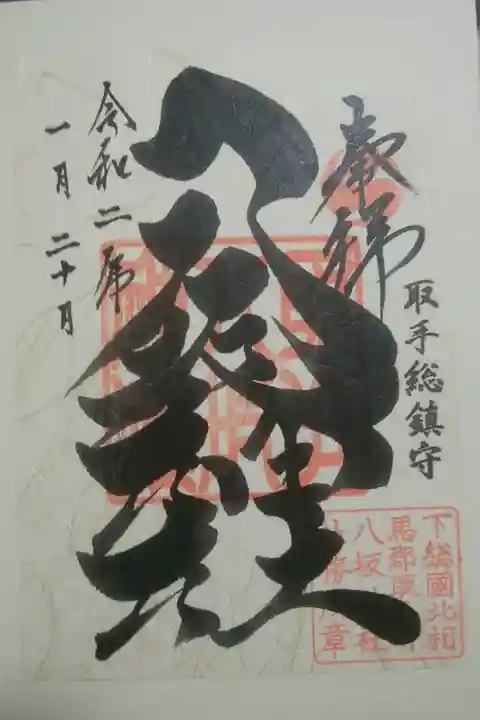 奉拝
取手総鎮守
八坂神社
令和二年
一月二十日
下総國北相
馬郡取
八坂